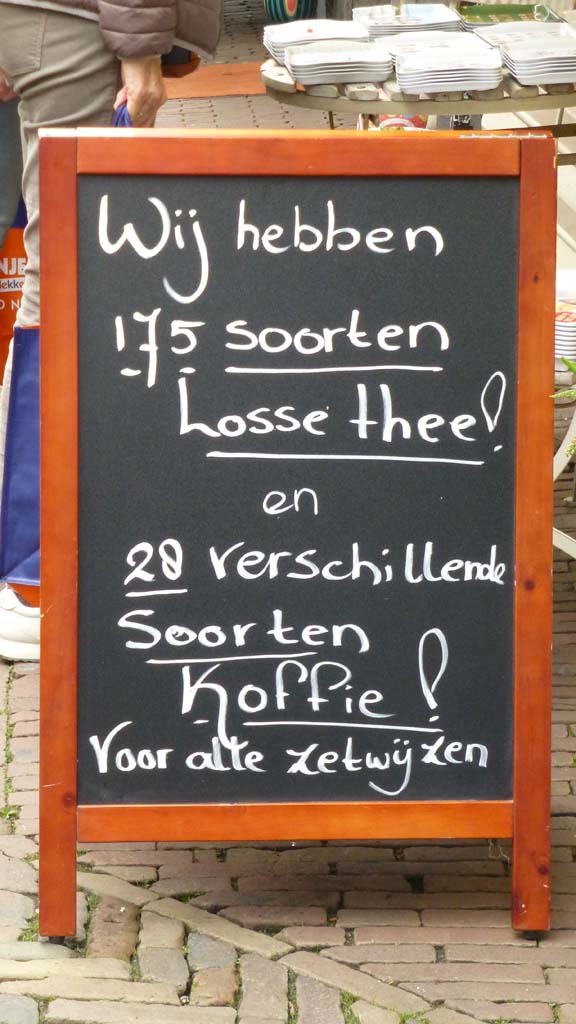 Wij hebben
175 soorten
Losse thee!
en
28 verschillende
Soorten
Koffie!
Voor alle zetwijzen
NJE